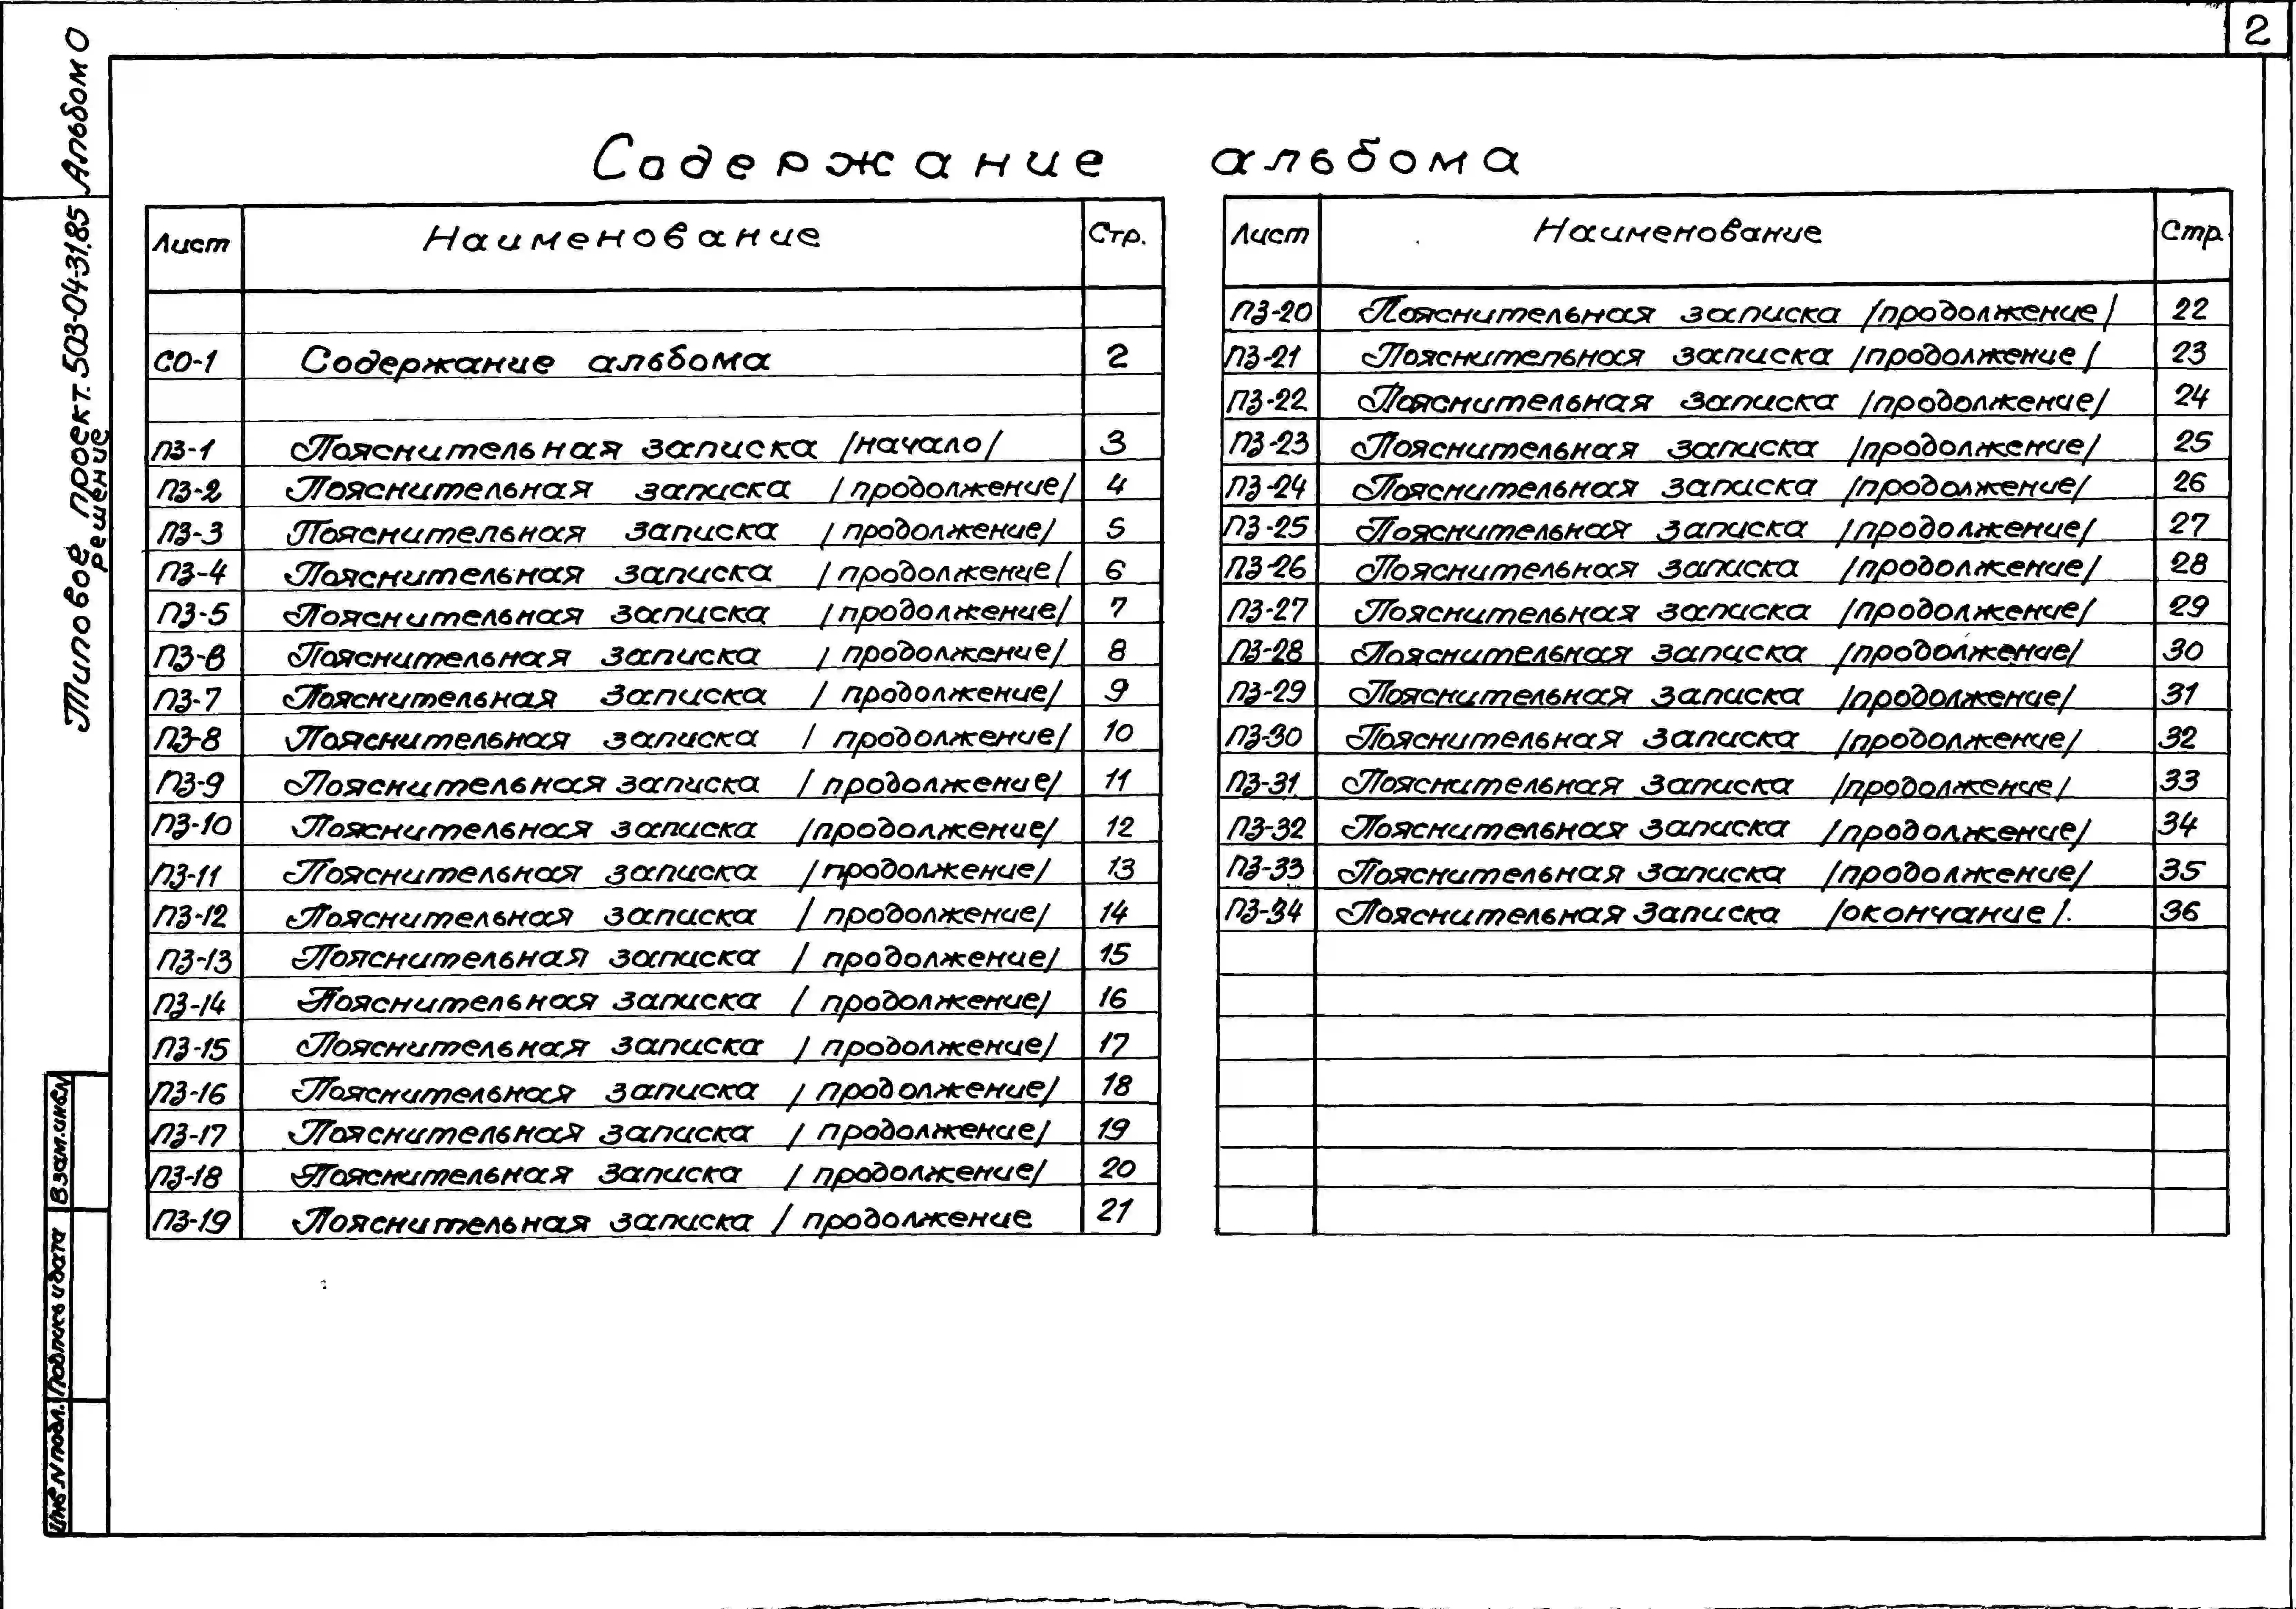 2
Альбом 0
Типовое проект. 503-04-31.85
решение
Содержание альбома
Лист Наименование Стр.
СО-1 Содержание альбома 2
ПЗ-1 Пояснительная записка /начало/ 3
ПЗ-2 Пояснительная записка /продолжение/ 4
ПЗ-3 Пояснительная записка /продолжение/ 5
ПЗ-4 Пояснительная записка /продолжение/ 6
ПЗ-5 Пояснительная записка /продолжение/ 7
ПЗ-6 Пояснительная записка /продолжение/ 8
ПЗ-7 Пояснительная записка /продолжение/ 9
ПЗ-8 Пояснительная записка /продолжение/ 10
ПЗ-9 Пояснительная записка /продолжение/ 11
ПЗ-10 Пояснительная записка /продолжение/ 12
ПЗ-11 Пояснительная записка /продолжение/ 13
ПЗ-12 Пояснительная записка /продолжение/ 14
ПЗ-13 Пояснительная записка /продолжение/ 15
ПЗ-14 Пояснительная записка /продолжение/ 16
ПЗ-15 Пояснительная записка /продолжение/ 17
ПЗ-16 Пояснительная записка /продолжение/ 18
ПЗ-17 Пояснительная записка /продолжение/ 19
ПЗ-18 Пояснительная записка /продолжение/ 20
ПЗ-19 Пояснительная записка /продолжение 21
Лист Наименование Стр
ПЗ-20 Пояснительная записка /продолжение/ 22
ПЗ-21 Пояснительная записка /продолжение/ 23
ПЗ-22 Пояснительная записка /продолжение/ 24
ПЗ-23 Пояснительная записка /продолжение/ 25
ПЗ-24 Пояснительная записка /продолжение/ 26
ПЗ-25 Пояснительная записка /продолжение/ 27
ПЗ-26 Пояснительная записка /продолжение/ 28
ПЗ-27 Пояснительная записка /продолжение/ 29
ПЗ-28 Пояснительная записка /продолжение/ 30
ПЗ-29 Пояснительная записка /продолжение/ 31
ПЗ-30 Пояснительная записка /продолжение/ 32
ПЗ-31 Пояснительная записка /продолжение/ 33
ПЗ-32 Пояснительная записка /продолжение/ 34
ПЗ-33 Пояснительная записка /продолжение/ 35
ПЗ-34 Пояснительная записка /окончание/. 36
Взам.инв.N
Подпись и дата
Инв.N подл.